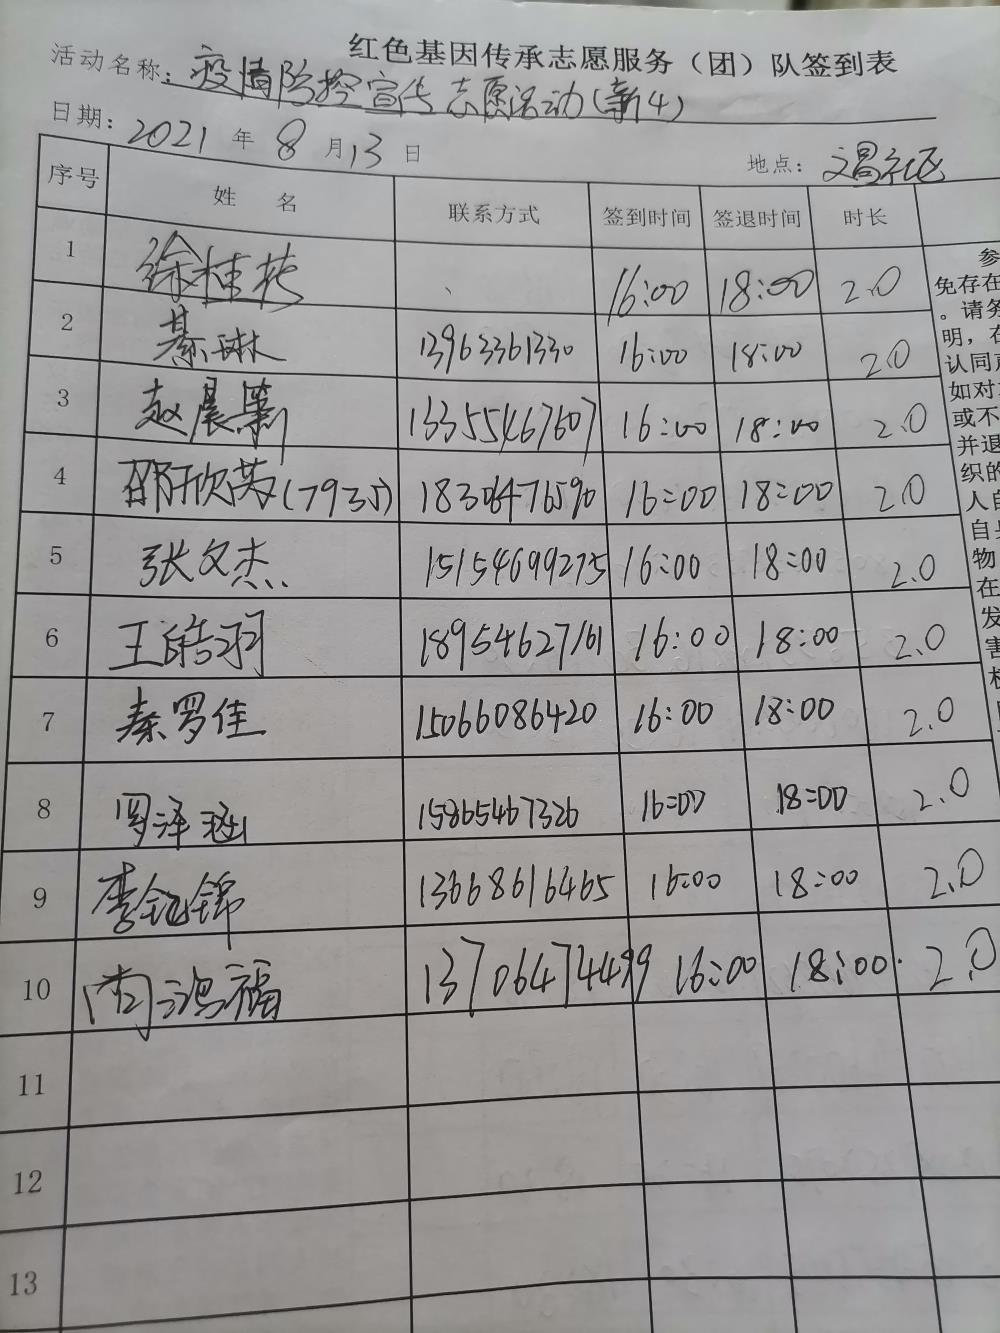 红色基因传承志愿服务（团）队签到表
活动名称：疫情防控宣传志愿活动(新4)
日期：2021年8月13日 地点：文昌社区
序号 姓名 联系方式 签到时间 签退时间 时长
1 徐桂花 16:00 18:00 2.0
2 綦琳 13963361330 16:00 18:00 2.0
3 赵晨 13355467607 16:00 18:00 2.0
4 邵欣英(7935) 18306476590 16:00 18:00 2.0
5 张文杰 15154699275 16:00 18:00 2.0
6 王皓羽 18954627161 16:00 18:00 2.0
7 秦罗佳 15066086420 16:00 18:00 2.0
8 罗泽涵 15865467326 16:00 18:00 2.0
9 李钰锦 13668616465 16:00 18:00 2.0
10 尚鸿福 13706474499 16:00 18:00 2.0
11
12
13
参
免存在
。请务
明，在
认同
如对
或不
并退
织的
人自
自
物
在
发
害